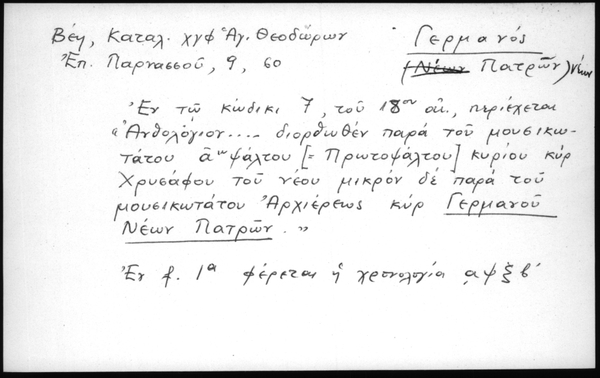 Βέη, Καταλ. χγφ Ἁγ. Θεοδώρων
Ἐπ. Παρνασσοῦ, 9, 60
Γερμανός
(Νέων Πατρῶν) νέων
Ἐν τῷ κώδικι 7, τοῦ 18ου αἰ., περιέχεται
«Ἀνθολόγιον.... διορθωθέν παρά τοῦ μουσικω-
τάτου ἄου ψάλτου [= Πρωτοψάλτου] κυρίου κύρ
Χρυσάφου τοῦ νέου μικρόν δέ παρά τοῦ
μουσικωτάτου Ἀρχιέρεως κύρ Γερμανοῦ
Νέων Πατρῶν.»
Ἐν φ. 1α φέρεται ἡ χρονολογία ͵αψξβ΄